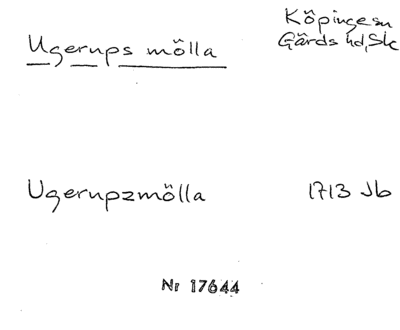 Ugerups mölla
Köpinge sn
Gärds hd, Sk
Ugerupzmölla 1713 Jb
Nr 17644